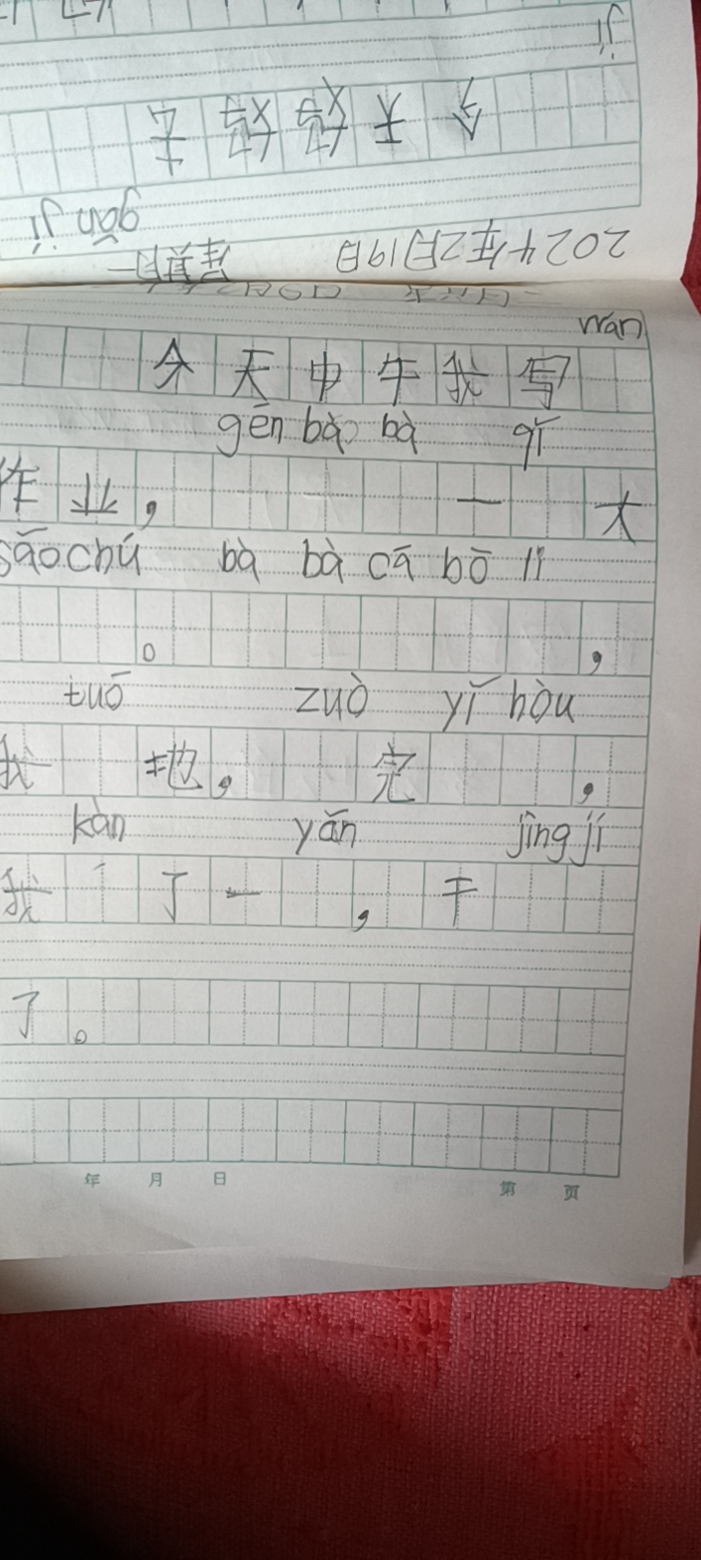 2024年2月19日 星期一
gǎn jǐ
今天妈妈
wán
今天中午我写
gēn bà bà qǐ
作业, 一 大
sǎo chú bà bà cā bō lí
。 ,
tuō zuò yǐ hòu
我 地, 完 ,
kàn yǎn jìng jí
我 了一 , 干
了。
年 月 日 第 页